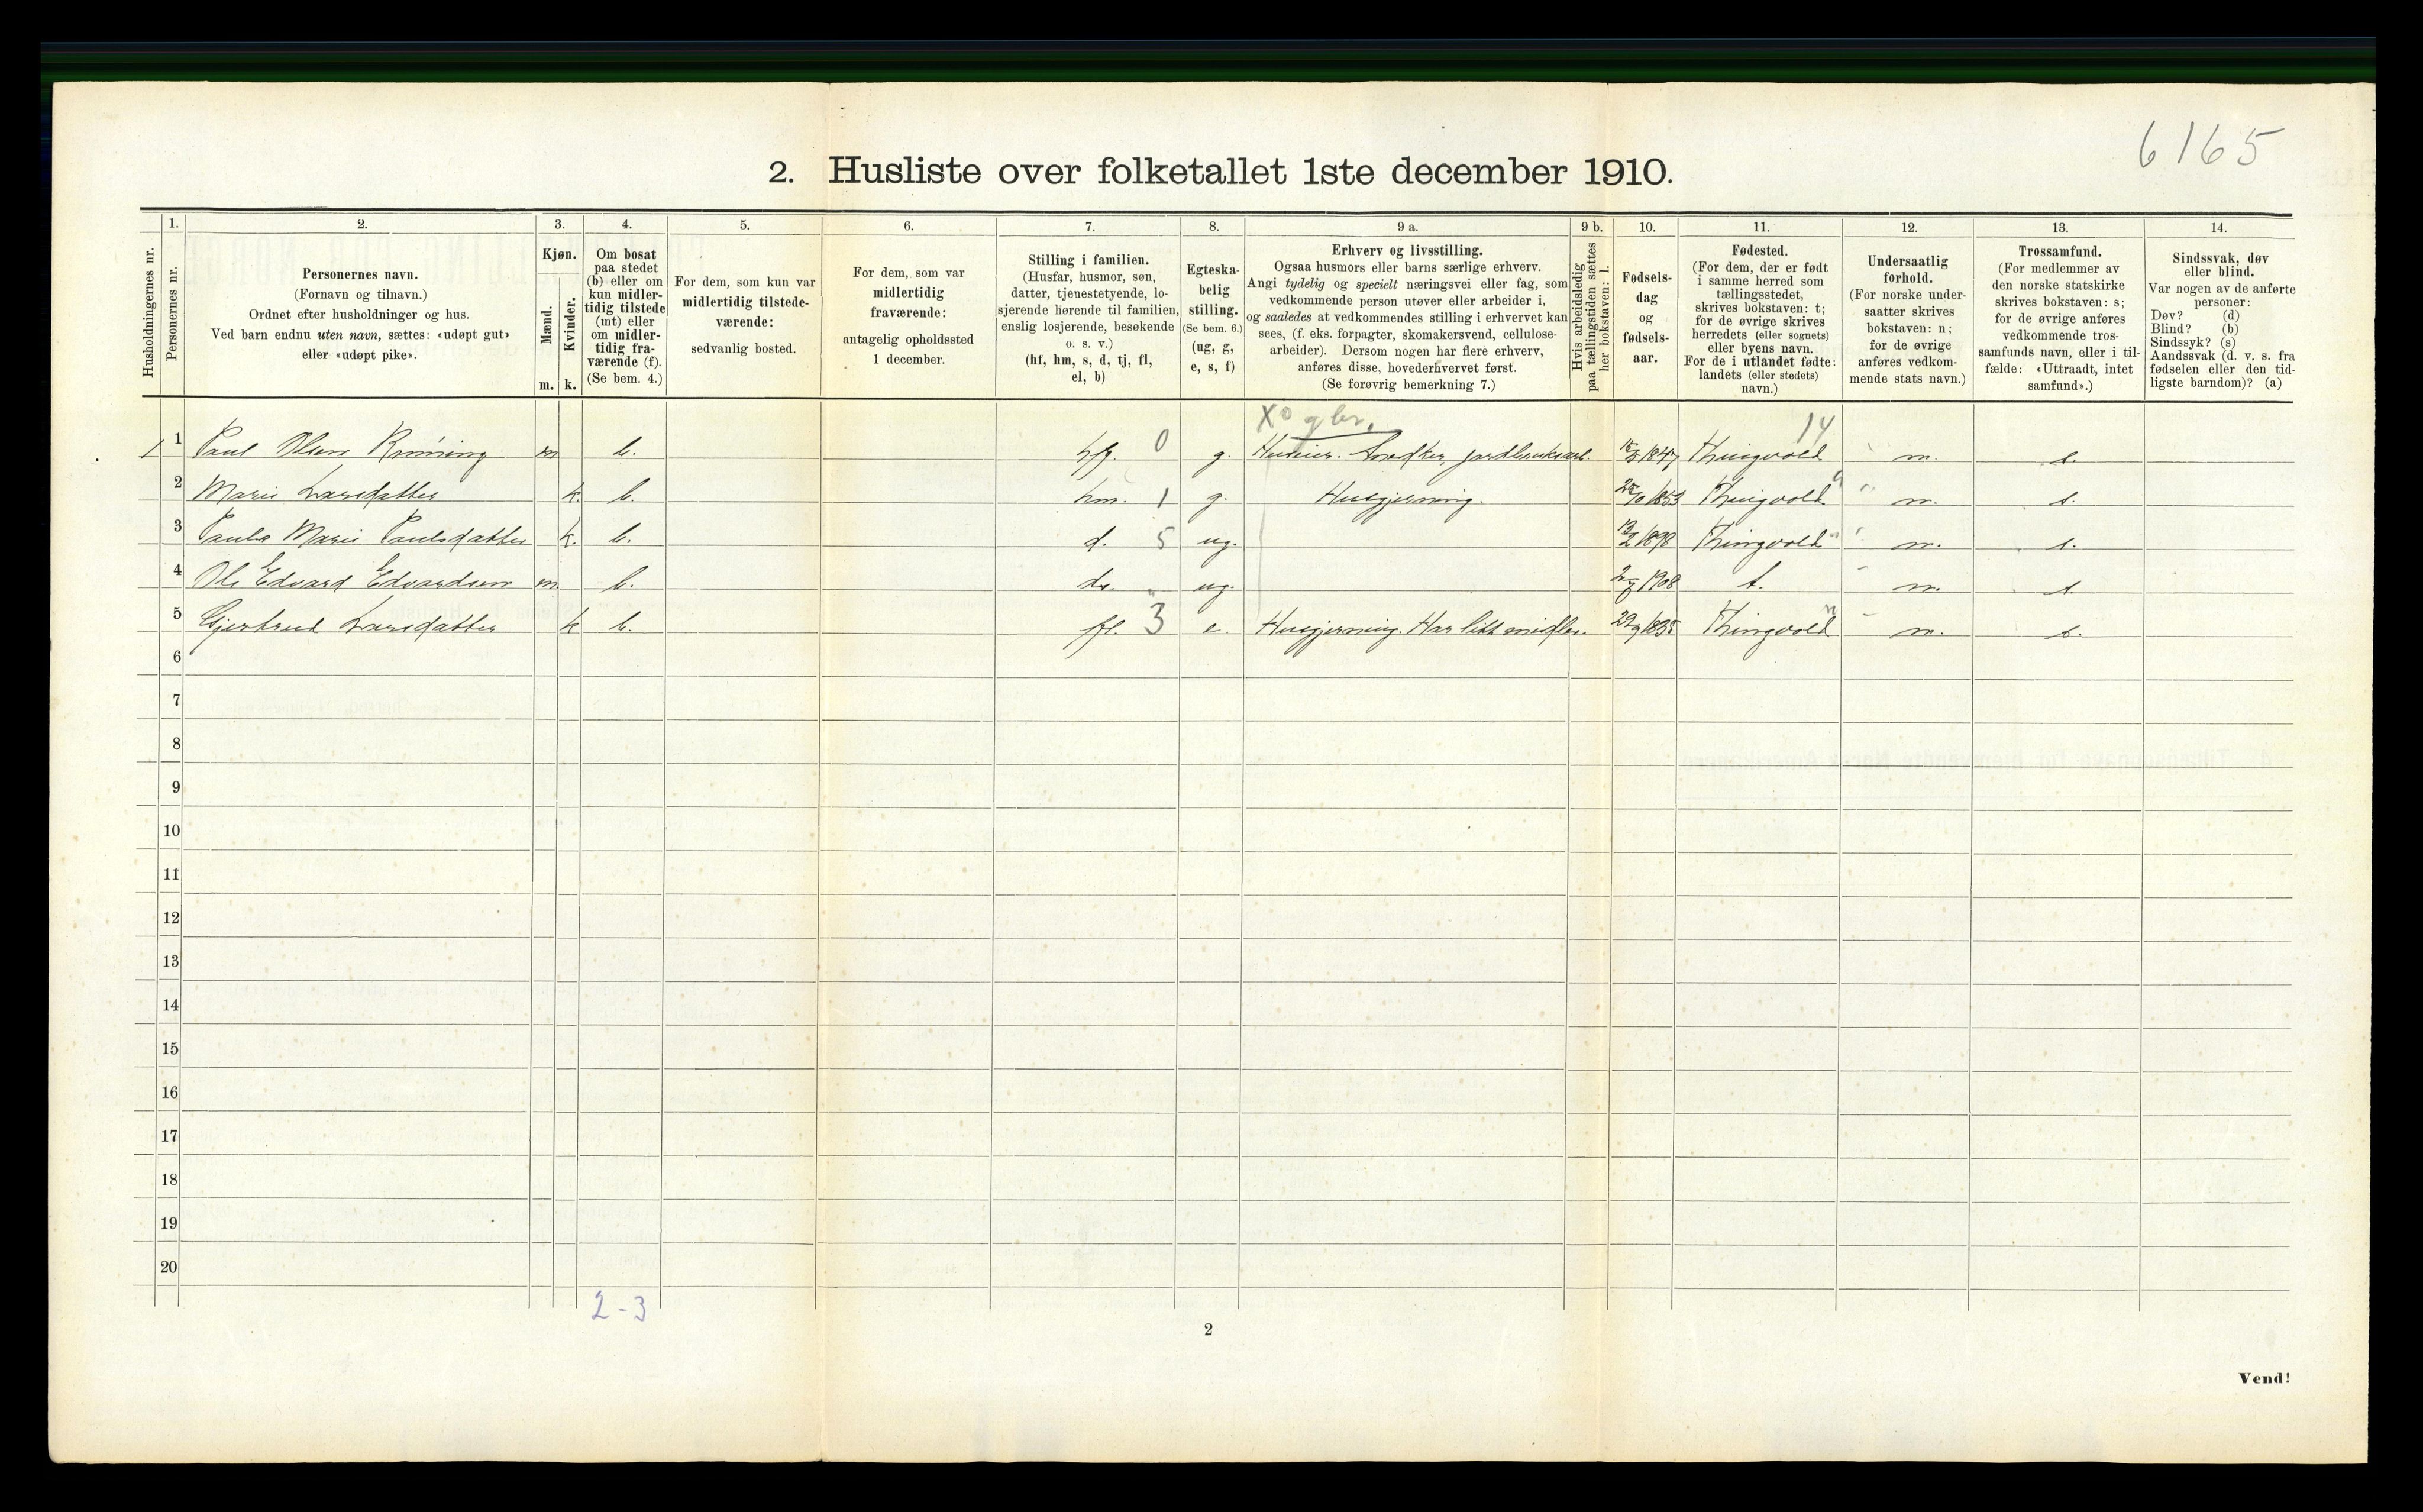 6165
2. Husliste over folketallet 1ste december 1910.
Husholdningernes nr.
1.
Personernes nr.
2.
Personernes navn.
(Fornavn og tilnavn.)
Ordnet efter husholdninger og hus.
Ved barn endnu uten navn, sættes: «udøpt gut»
eller «udøpt pike».
3.
Kjøn.
Mænd.
Kvinder.
m. k.
4.
Om bosat
paa stedet
(b) eller om
kun midler-
tidig tilstede
(mt) eller
om midler-
tidig fra-
værende (f).
(Se bem. 4.)
5.
For dem, som kun var
midlertidig tilstede-
værende:
sedvanlig bosted.
6.
For dem, som var
midlertidig
fraværende:
antagelig opholdssted
1 december.
7.
Stilling i familien.
(Husfar, husmor, søn,
datter, tjenestetyende, lo-
sjerende hørende til familien,
enslig losjerende, besøkende
o. s. v.)
(hf, hm, s, d, tj, fl,
el, b)
8.
Egteska-
belig
stilling.
(Se bem. 6.)
(ug, g,
e, s, f)
9 a.
Erhverv og livsstilling.
Ogsaa husmors eller barns særlige erhverv.
Angi tydelig og specielt næringsvei eller fag, som
vedkommende person utøver eller arbeider i,
og saaledes at vedkommendes stilling i erhvervet kan
sees, (f. eks. forpagter, skomakersvend, cellulose-
arbeider). Dersom nogen har flere erhverv,
anføres disse, hovederhvervet først.
(Se forøvrig bemerkning 7.)
9 b.
Hvis arbeidsledig
paa tællingstiden sættes
her bokstaven: l.
10.
Fødsels-
dag
og
fødsels-
aar.
11.
Fødested.
(For dem, der er født
i samme herred som
tællingsstedet,
skrives bokstaven: t;
for de øvrige skrives
herredets (eller sognets)
eller byens navn.
For de i utlandet fødte:
landets (eller stedets)
navn.)
12.
Undersaatlig
forhold.
(For norske under-
saatter skrives
bokstaven: n;
for de øvrige
anføres vedkom-
mende stats navn.)
13.
Trossamfund.
(For medlemmer av
den norske statskirke
skrives bokstaven: s;
for de øvrige anføres
vedkommende tros-
samfunds navn, eller i til-
fælde: «Uttraadt, intet
samfund».)
14.
Sindssvak, døv
eller blind.
Var nogen av de anførte
personer:
Døv? (d)
Blind? (b)
Sindssyk? (s)
Aandssvak (d. v. s. fra
fødselen eller den tid-
ligste barndom)? (a)
14
1 1 Paul Olsen m b. hf. 0 g. Huseier. Snedker, 1847 Thingvold n. s.
2 Marie Larsdatter k. b. hm. 1 g. Husgjerning. 1853 Thingvold " n. s.
3 Paula Marie Paulsdatter k. b. d. 5 ug. 1898 Thingvold " n. s.
4 Ole Edvard Edvardsen m b. ug. 1908 t. n. s.
5 Gjertrud Larsdatter k b. fl. 3 e. Husgjerning. Har litt midler. 1835 Thingvold " n. s.
6
7
8
9
10
11
12
13
14
15
16
17
18
19
20
2-3
2
Vend!